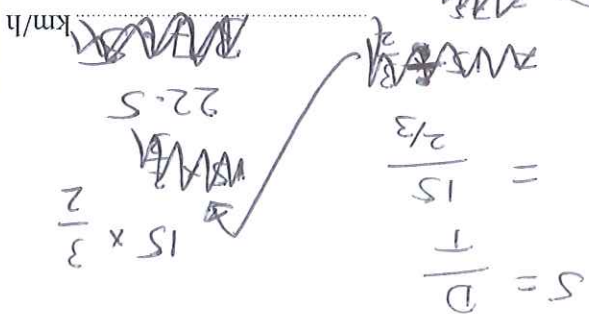 S = D/T
= 15/2/3
15 × 3/2
22.5
km/h